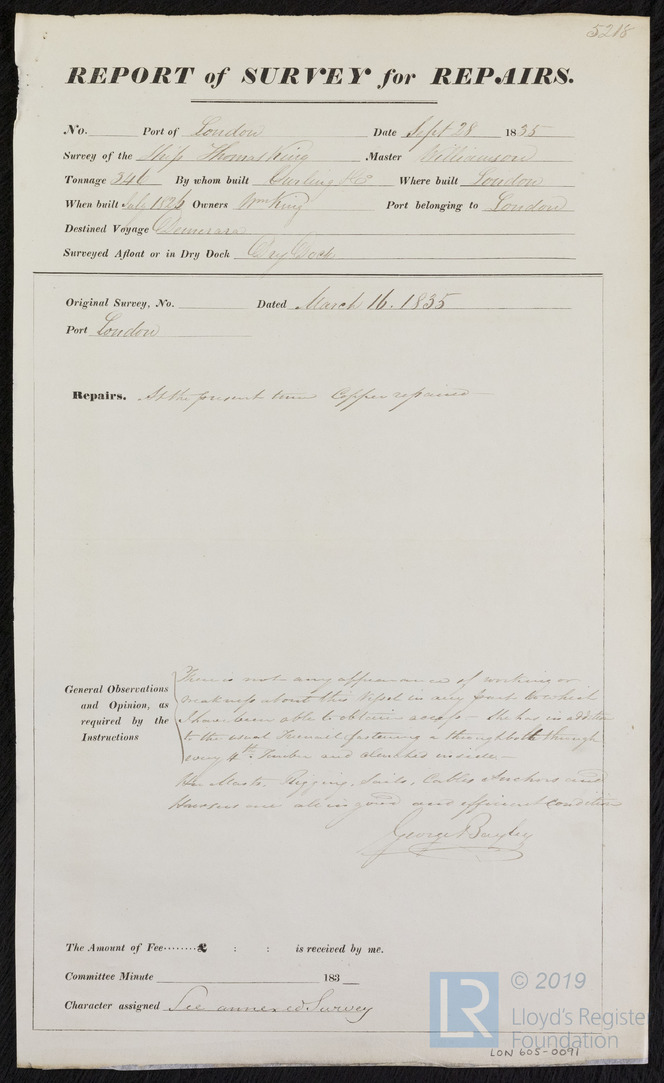 5218
REPORT of SURVEY for REPAIRS.
No. Port of London Date Sept 28 1835
Survey of the Ship Thomas King Master Williamson
Tonnage 346 By whom built Curling & Co Where built London
When built July 1826 Owners Wm King Port belonging to London
Destined Voyage Demerara
Surveyed Afloat or in Dry Dock Dry Dock
Original Survey, No. Dated March 16. 1835
Port London
Repairs. At the present time Copper repaired
General Observations and Opinion, as required by the Instructions
There is not any appearance of working or
weakness about this Vessel in any part to which
I have been able to obtain access - She has in addition
to the usual Treenail fastening a through bolt through
every 4th Timber and clenched inside -
Her Masts, Rigging, Sails, Cables Anchors and
Hawsers are all in good and efficient condition
George Bayley
The Amount of Fee........£ : : is received by me.
Committee Minute 183
Character assigned See annexed Survey
LR © 2019
Lloyd's Register
Foundation
LON 605-0091